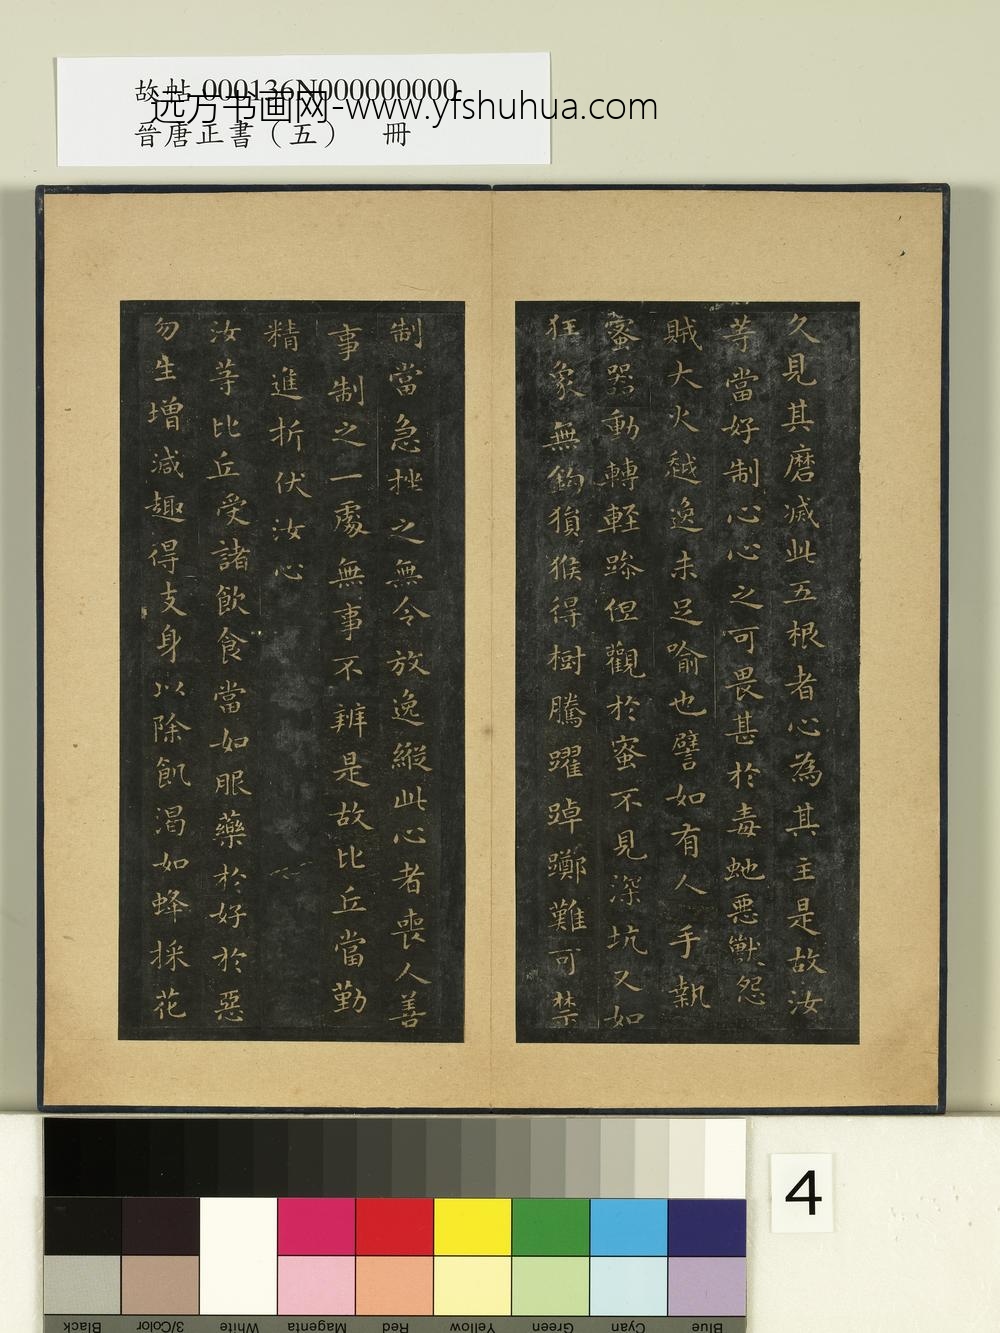 故帖 000136N000000000
远方书画网-www.yfshuhua.com
晉唐正書（五）　冊
久見其磨滅此五根者心為其主是故汝
等當好制心心之可畏甚於毒虵惡獸怨
賊大火越逸未足喻也譬如有人手執
蜜器動轉輕躁但觀於蜜不見深坑又如
狂象無鉤猿猴得樹騰躍踔躑難可禁
制當急挫之無令放逸縱此心者喪人善
事制之一處無事不辨是故比丘當勤
精進折伏汝心
汝等比丘受諸飲食當如服藥於好於惡
勿生增減趣得支身以除飢渴如蜂採花
4
Black
3/Color
White
Magenta
Red
Yellow
Green
Cyan
Blue